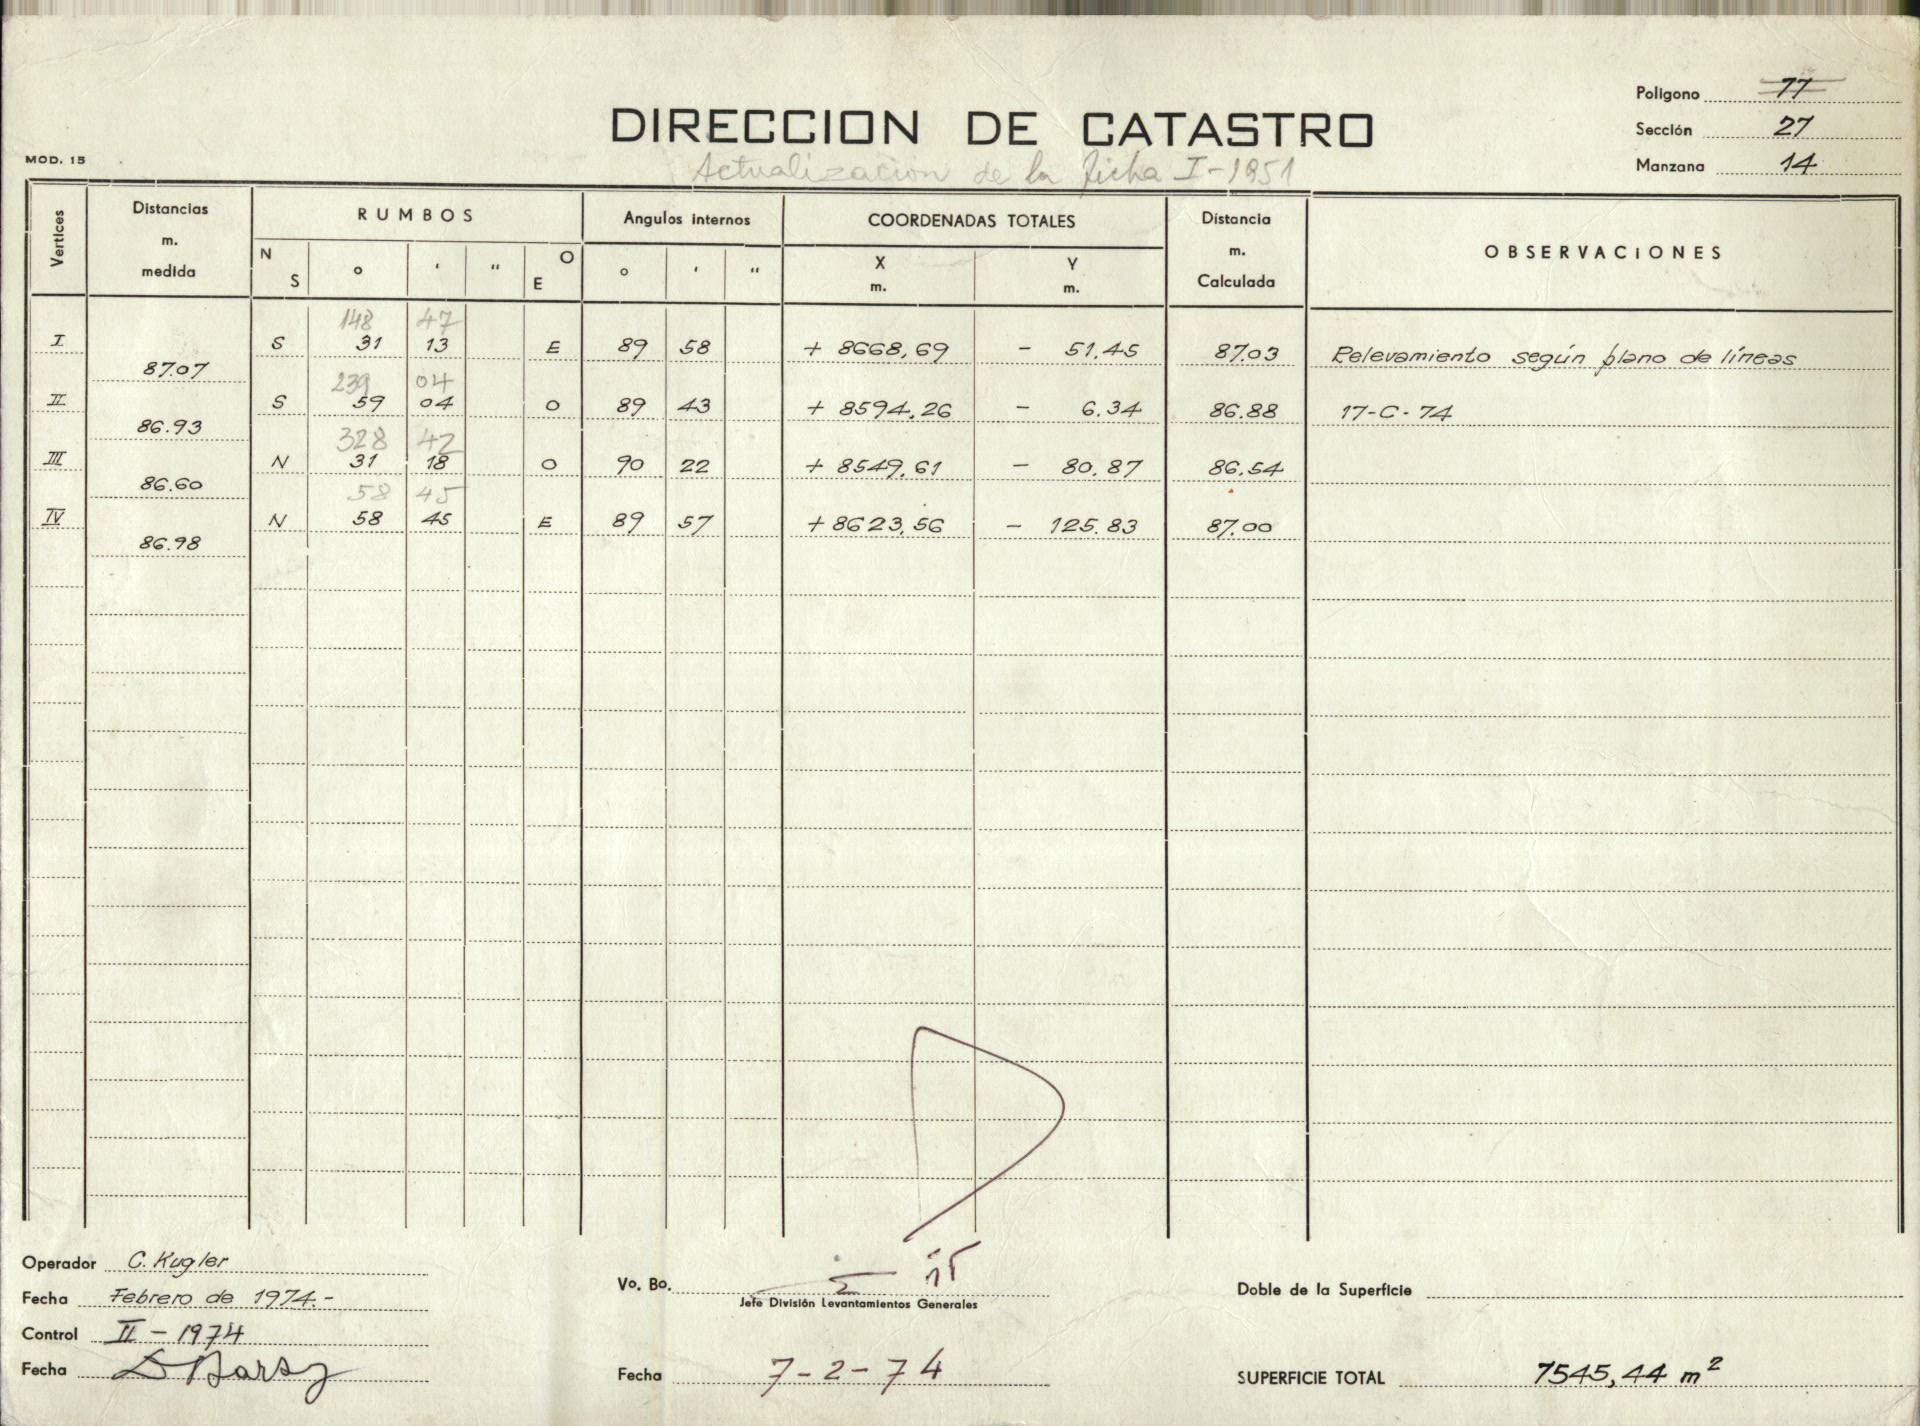 Poligono 77
DIRECCION DE CATASTRO
Sección 27
MOD. 15
Actualización de la ficha I-1951
Manzana 14
Vertices
Distancias
m.
medida
RUMBOS
N S
°
'
"
O E
Angulos internos
°
'
"
COORDENADAS TOTALES
X
m.
Y
m.
Distancia
m.
Calculada
OBSERVACIONES
148 47
I S 31 13 E 89 58 + 8668,69 - 51.45 87.03 Relevamiento según plano de líneas
87.07
239 04
II S 59 04 O 89 43 + 8594,26 - 6.34 86.88 17-C-74
86.93
328 42
III N 31 18 O 90 22 + 8549,61 - 80.87 86.54
86.60
58 45
IV N 58 45 E 89 57 + 8623,56 - 125.83 87.00
86.98
Operador C. Kugler
Fecha Febrero de 1974.-
Control II - 1974
Fecha
Vo. Bo.
Jefe División Levantamientos Generales
Fecha 7-2-74
Doble de la Superficie
SUPERFICIE TOTAL 7545,44 m²